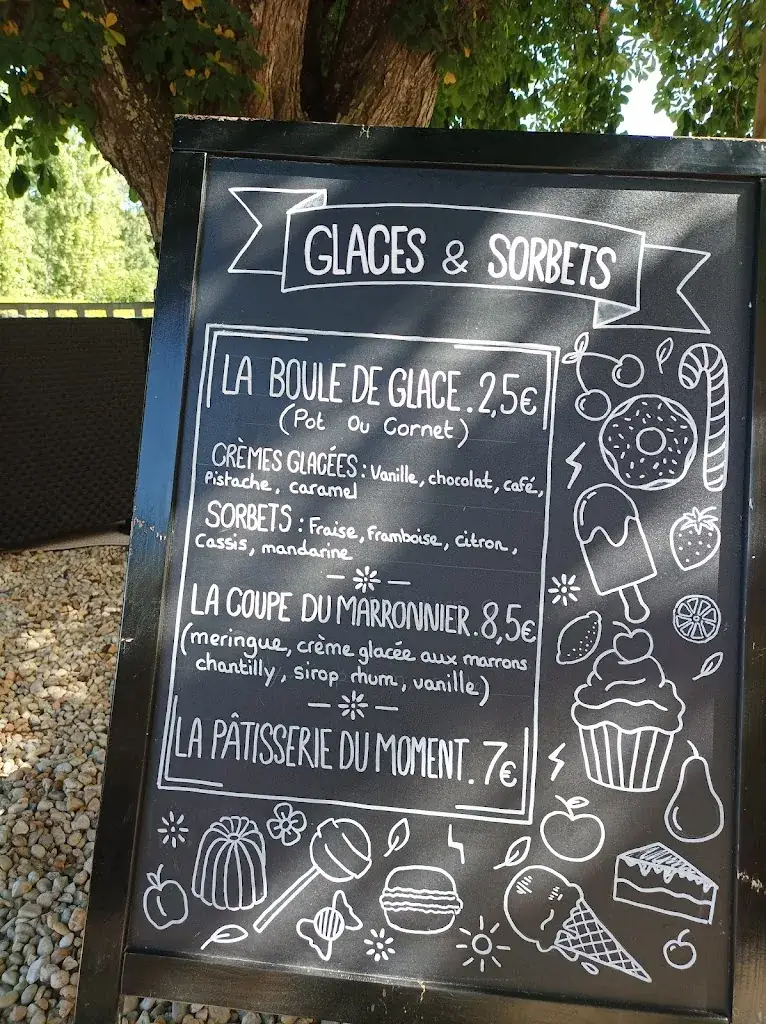 GLACES & SORBETS
LA BOULE DE GLACE . 2,5€
(Pot Ou Cornet)
CRÈMES GLACÉES : Vanille, chocolat, café,
Pistache, caramel
SORBETS : Fraise, Framboise, citron,
Cassis, mandarine
LA COUPE DU MARRONNIER . 8,5€
(meringue, crème glacée aux marrons
chantilly, sirop rhum, vanille)
LA PÂTISSERIE DU MOMENT . 7€